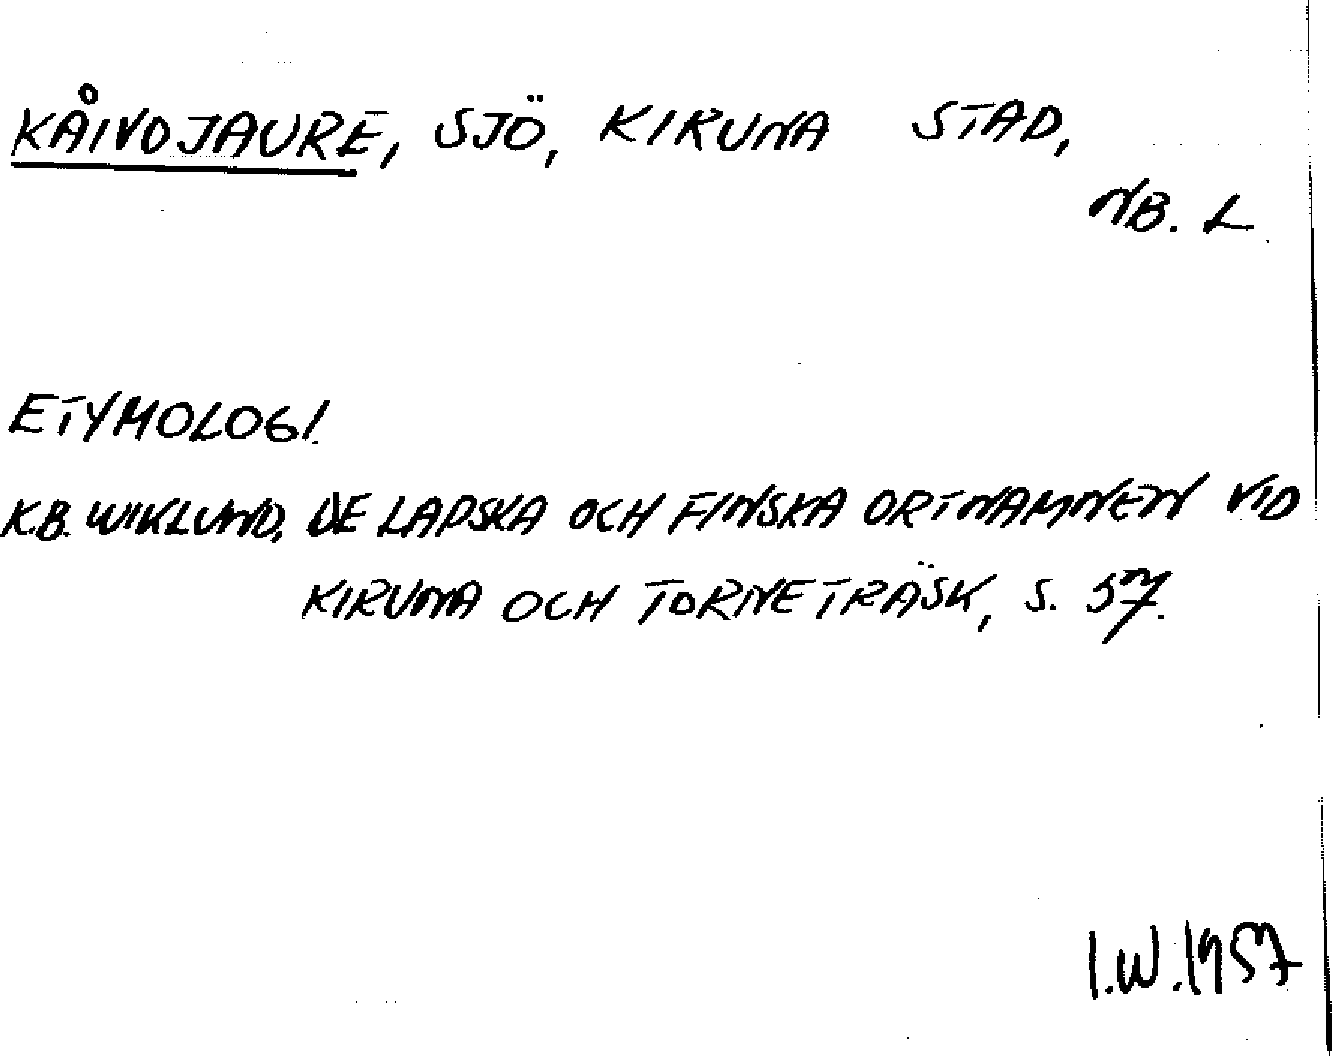 KÅIVOJAURE, SJÖ, KIRUNA STAD,
NB. L.
ETYMOLOGI.
K.B. WIKLUND, DE LAPSKA OCH FINSKA ORTNAMNEN VID
KIRUNA OCH TORNETRÄSK, S. 57.
I.W. 1957